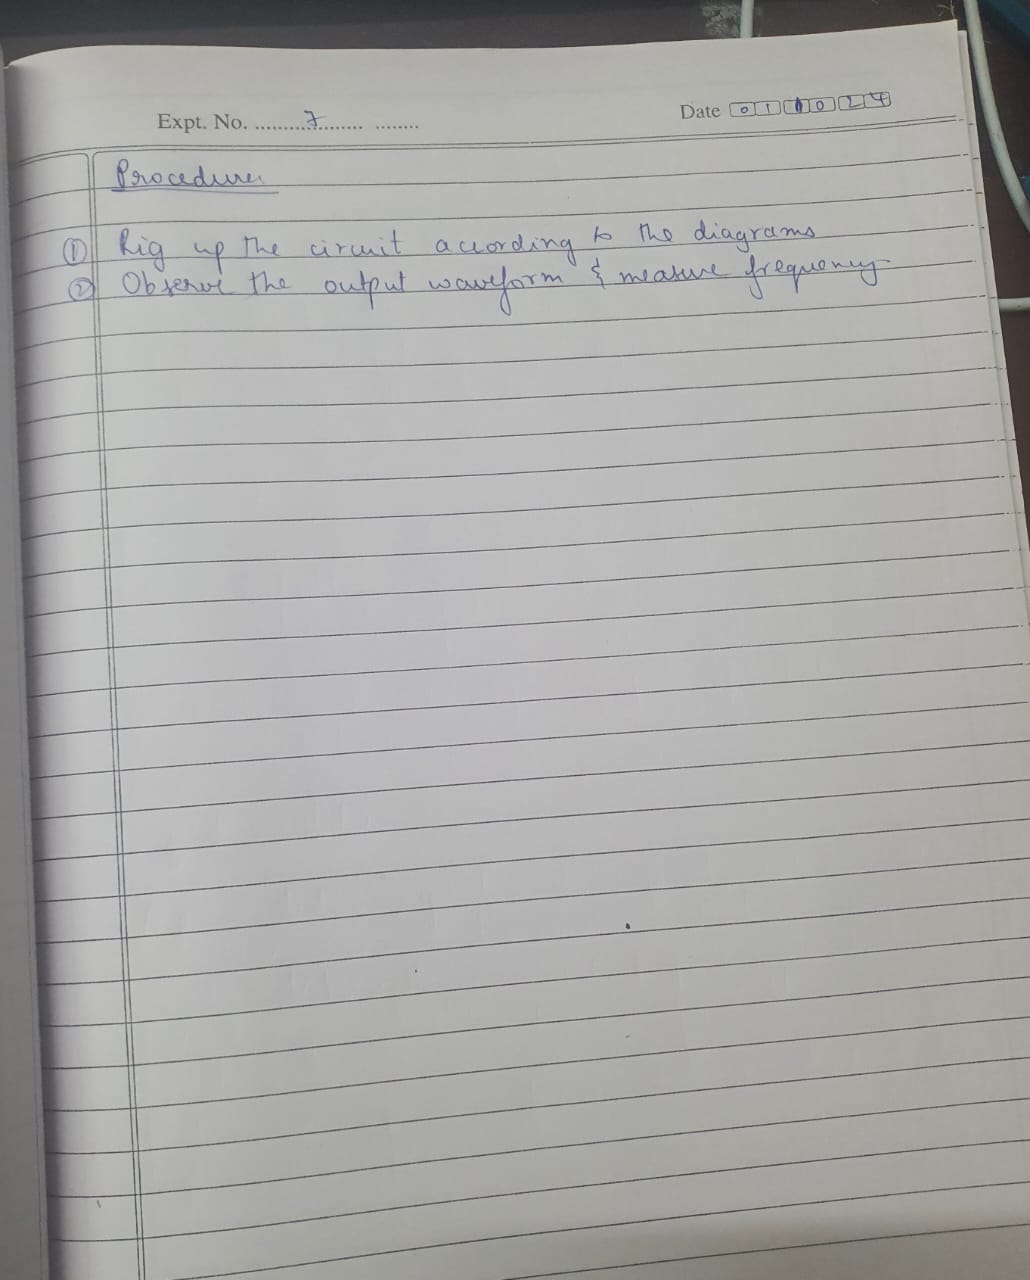 Expt. No. ............7........ ........
Date 01 10 24
Procedure.
① Rig up the circuit according to the diagrams
② Observe the output waveform & measure frequency